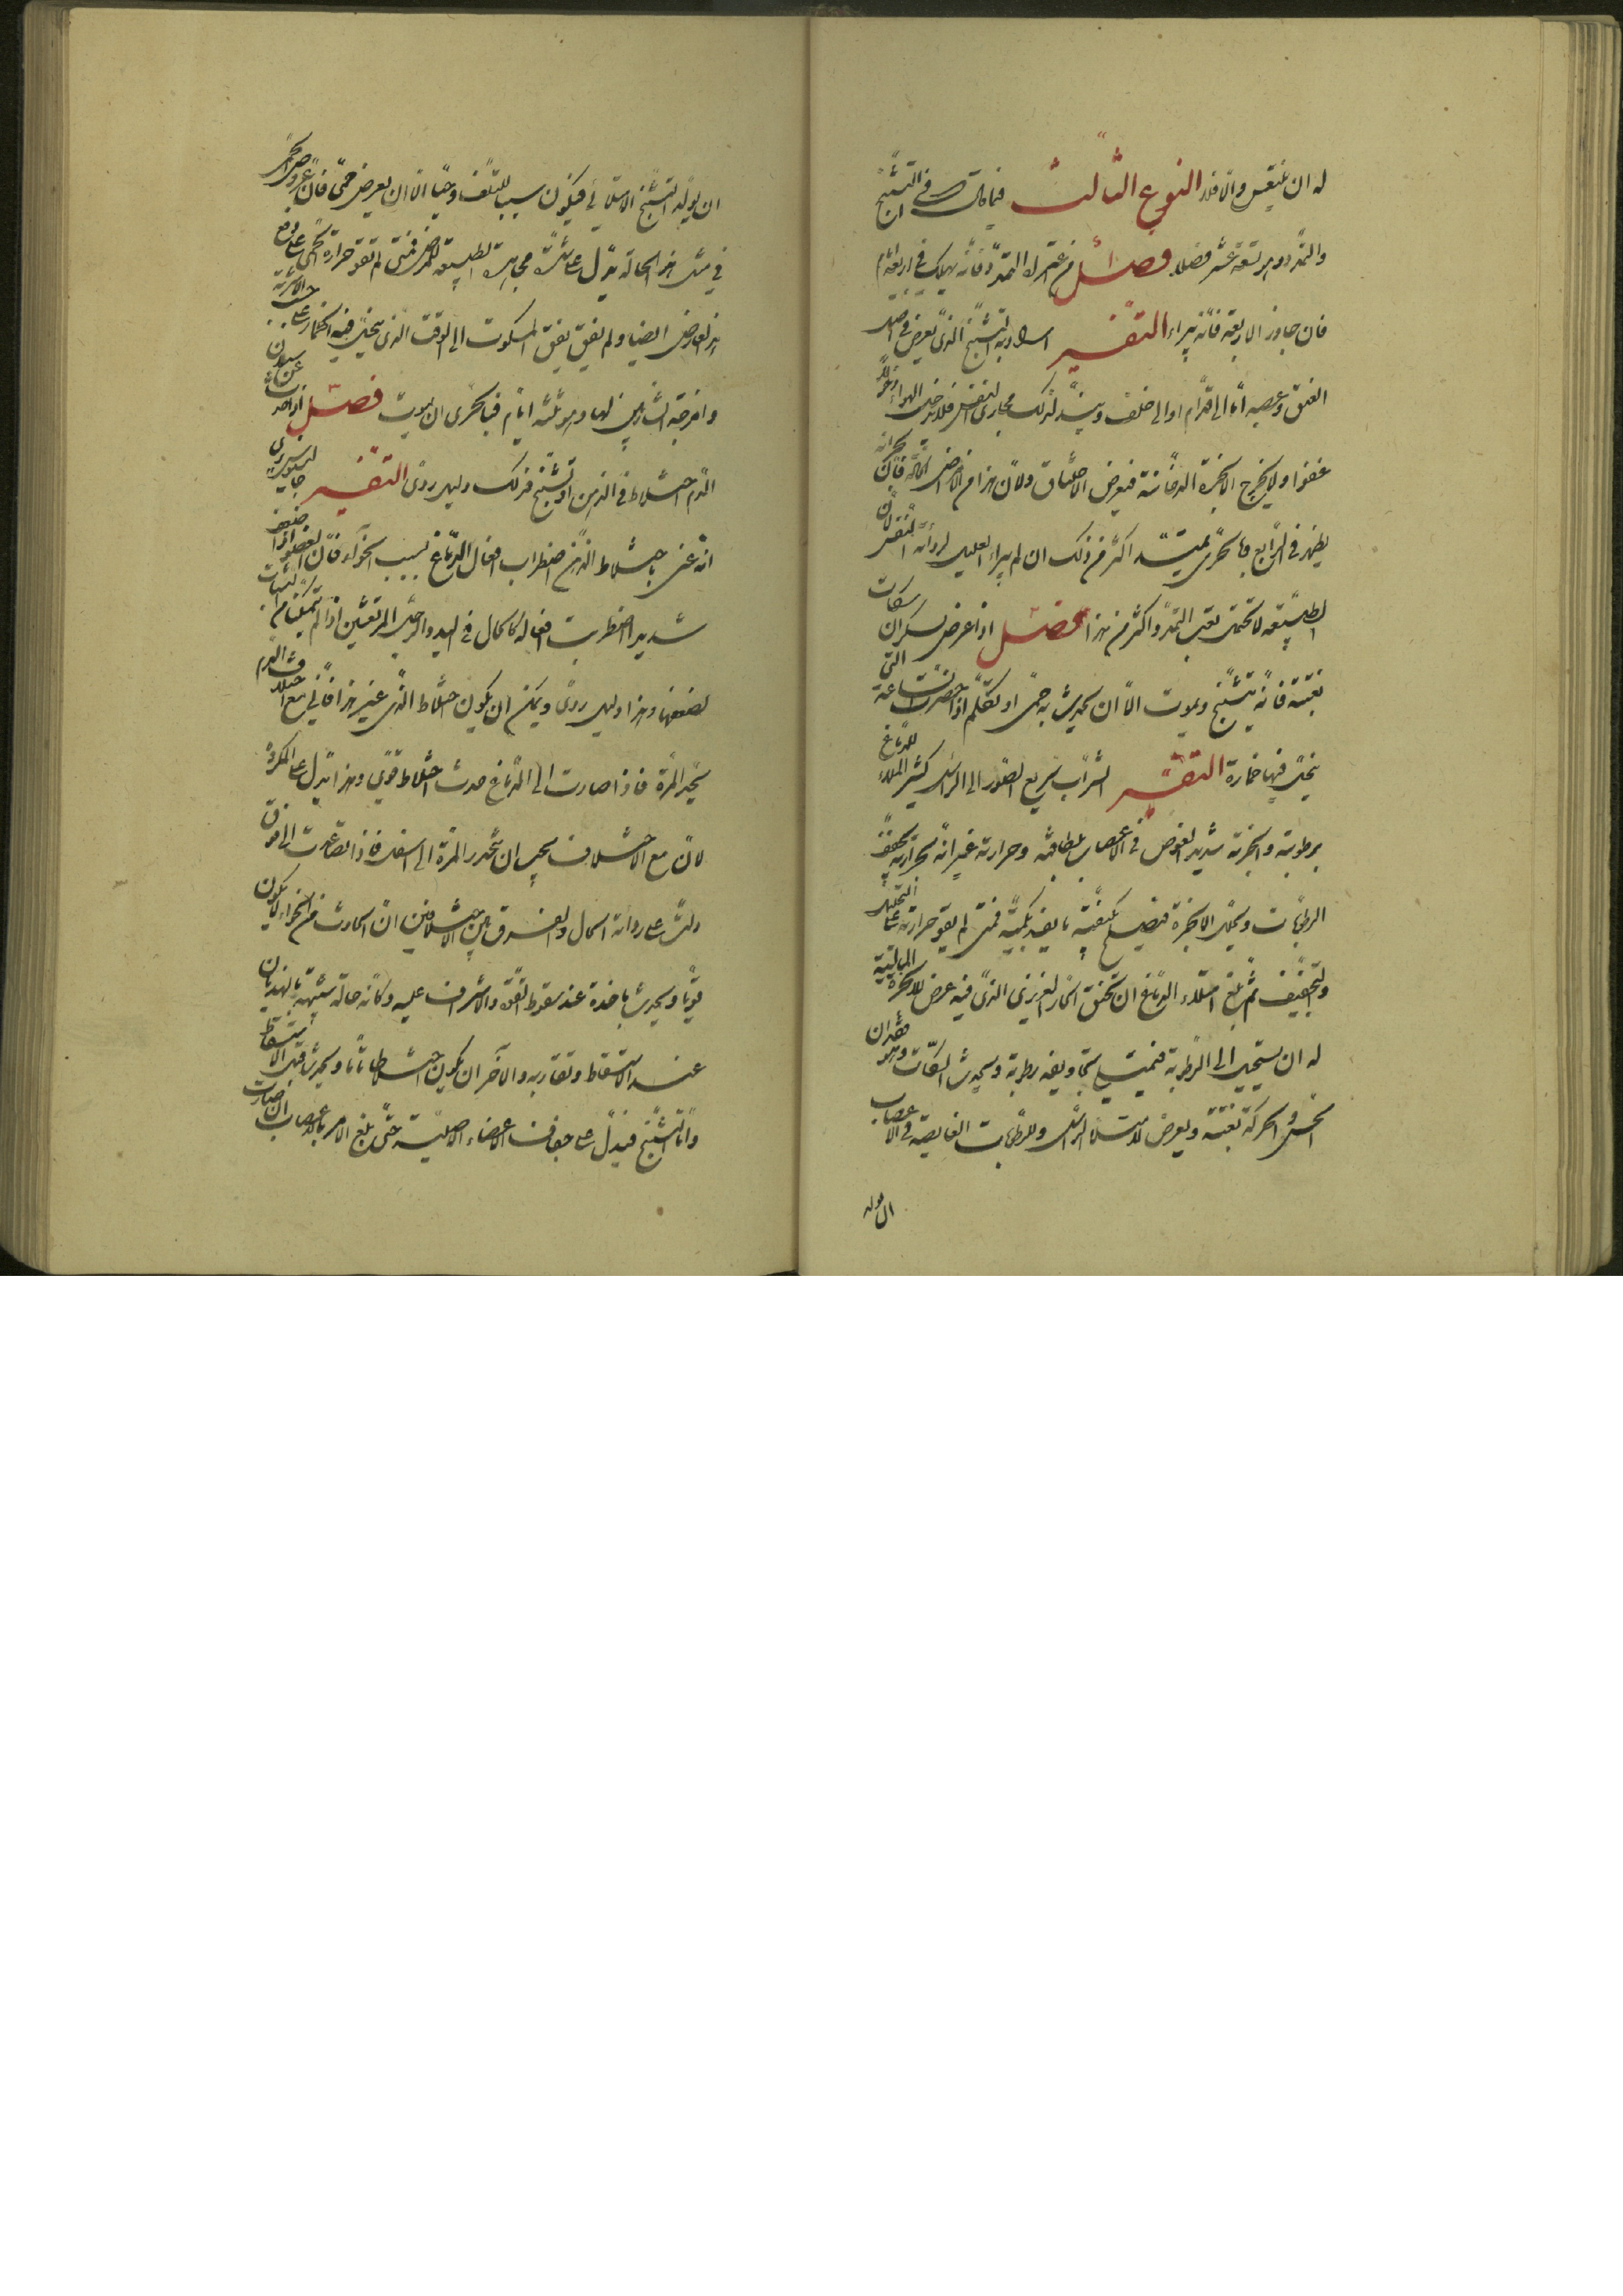 له ان ينقيس والا فلا النوع الثالث فيما قال بقراط في التشنج
والتمدد وهو تسعة عشر فصلا فصل من اعتراه التمدد فانه يهلك في اربعة ايام
فان جاوز الاربعة فانه يبراء التفسير اراد به التشنج الذي يعرض في عضل
العنق وعصبه اما الى قدام او الى خلف ويشد لذلك مجارى التنفس فلا يدخل الهواء
عفوا ولا يخرج الابخرة الدخانية فيعرض الاختناق ولان هذا من الامراض الحادة فان بحرانه
يظهر في الرابع فبالحرى يميته اكثر من ذلك ان لم يبراء العليل لرداءة التنفس لان
الطبيعة لا تحتمل تعب التمدد اكثر من هذا فصل اذا عرض لسكران سكات
بغتة فانه يتشنج ويموت الا ان يحدث به حمى او يتكلم اذا حضرت الساعة التى
ينحل فيها خماره التفسير الشراب سريع الصعود الى الراس كثير الملاء للدماغ
برطوبته وابخرته شديد الغوص في الاعصاب بلطافته وحرارته غير انه بحرارته يجفف
الرطوبات ويحلل الابخرة فيصلح بكيفيته ما يفسد بكميته فمتى لم يقو حرارته على التحليل
والتجفيف ثم بلغ امتلاء الدماغ ان تخنق الحار الغريزى الذى فيه عرض للابخرة المائية
له ان يستحيل الى الرطوبة فيمتلى تجاويفه رطوبة ويحدث السكات وهو فقدان
الحس والحركة بغتة ويعرض لامتلاء الراس وللرطوبات الغايصة في الاعصاب
ان يولد
ان يولد التشنج الامتلائي فيكون سببا للتلف وحيا الا ان يعرض حمى فان عروض الحمى
في مثل هذه الحالة يدل على شدة مجاهدة الطبيعة للمرض فمتى لم تقو حرارة الحمى على دفع
هذا العارض ايضا ولم يفق يفيق المسكوت الى الوقت الذى ينحل فيه الخمار على حسب الاشربة
وامزجة الشاربين لها وهو ثلثة ايام فبالحرى ان يموت فصل اذا حدث عن سيلان
الدم اختلاط في الذهن او تشنج فذلك دليل ردى التفسير
انه عنى باختلاط الذهن اضطراب افعال الدماغ بسبب الخواء فان العضو اذا ضعف
شديدا اضطربت افعاله كالحال في اليد والرجل المرتعشين اذا لم يتمكنا من الثبات
لضعفها وهذا دليل ردى ويمكن ان يكون اختلاط الذهن غير هذا فان مع اختلاف الدم
ينجذب المرة فاذا صارت الى الدماغ حدث اختلاط قوى وهذا يدل على المكروه
لان مع الاختلاف يجب ان تنحدر المرة الى اسفل فاذا تصاعدت الى فوق
دلت على رداءة الحال والفرق بين الاختلاطين ان الحادث من الخواء لا يكون
قويا ويحدث باخذة عند سقوط القوة والاشراف عليه وكانه حالة شبيهة بالهذيان
عند الاستقاط وتقاربه والآخر ان يكون اختلاطا تاما ويحدث قبل الاستسقاط
واما التشنج فيدل على جفاف الاعضاء الاصلية حتى بلغ الامر بالاعصاب ان صارت